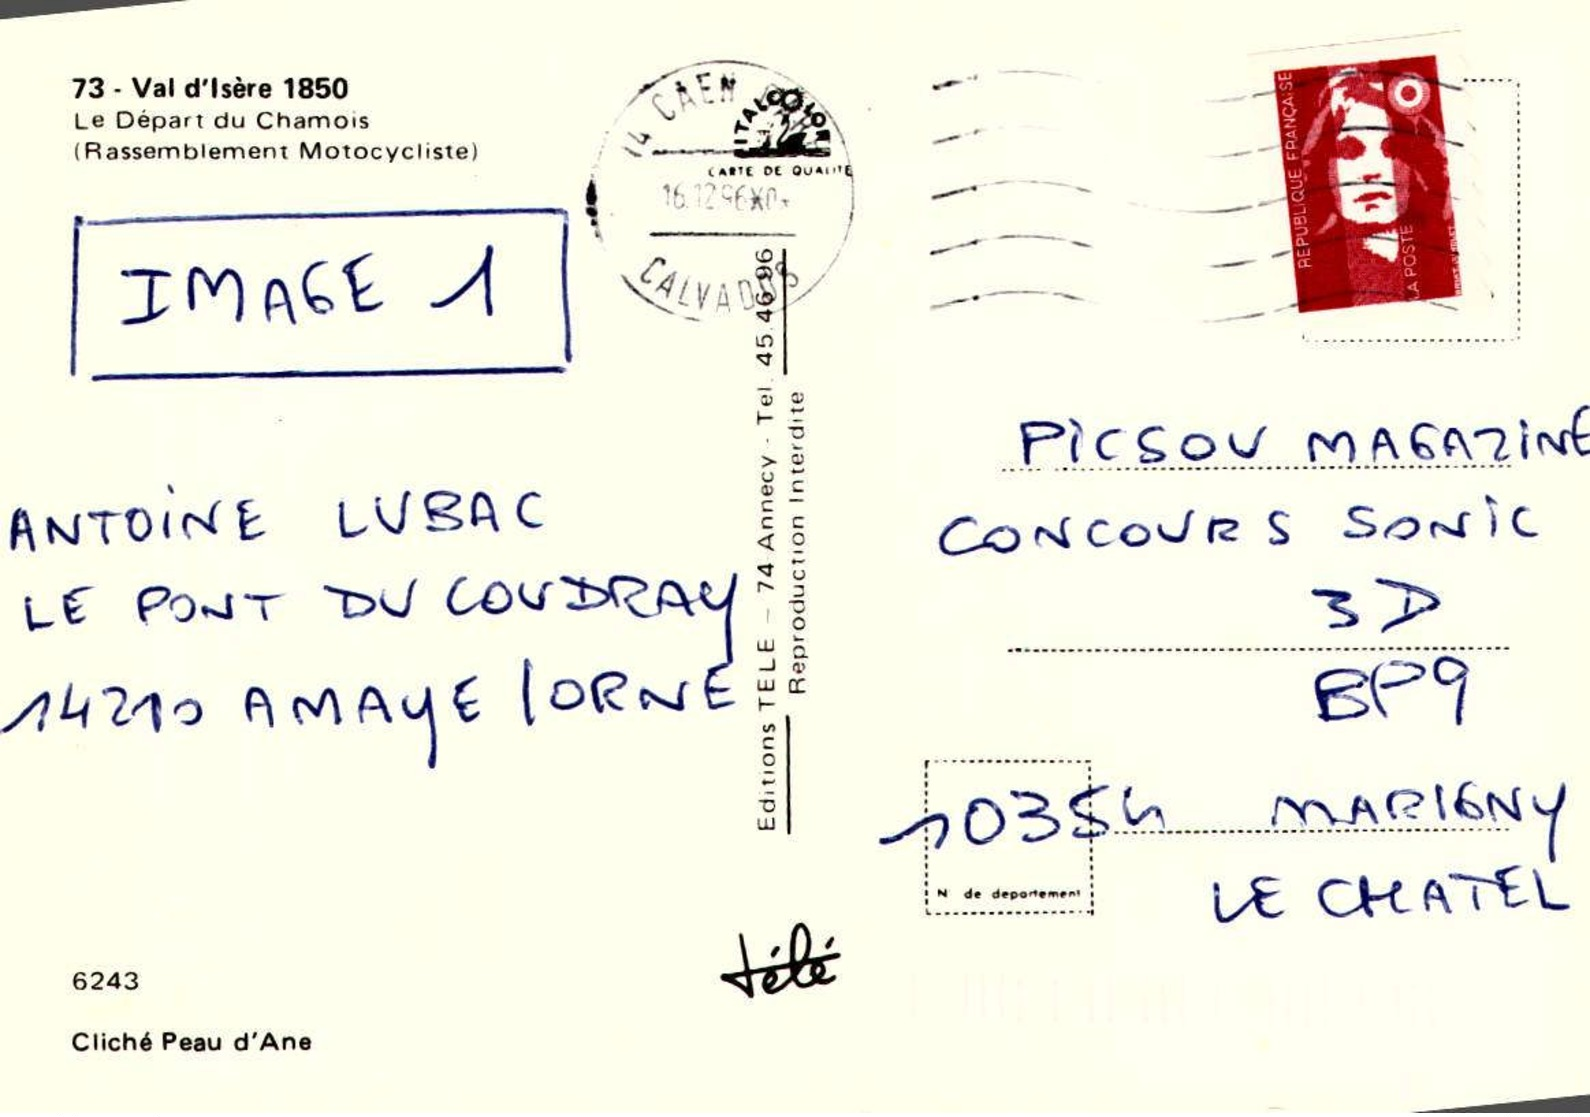 73 - Val d'Isère 1850
Le Départ du Chamois
(Rassemblement Motocycliste)
IMAGE 1
ANTOINE LUBAC
LE PONT DU COUDRAY
14210 AMAYE / ORNE
6243
Cliché Peau d'Ane
14 CAEN
16.12.96
CALVADOS
ITALCOLOR
CARTE DE QUALITE
Editions TELE - 74 Annecy - Tel. 45.46.96
Reproduction Interdite
télé
REPUBLIQUE FRANÇAISE
LA POSTE
PICSOU MAGAZINE
CONCOURS SONIC
3D
BP9
10354 MARIGNY
LE CHATEL
N de departement